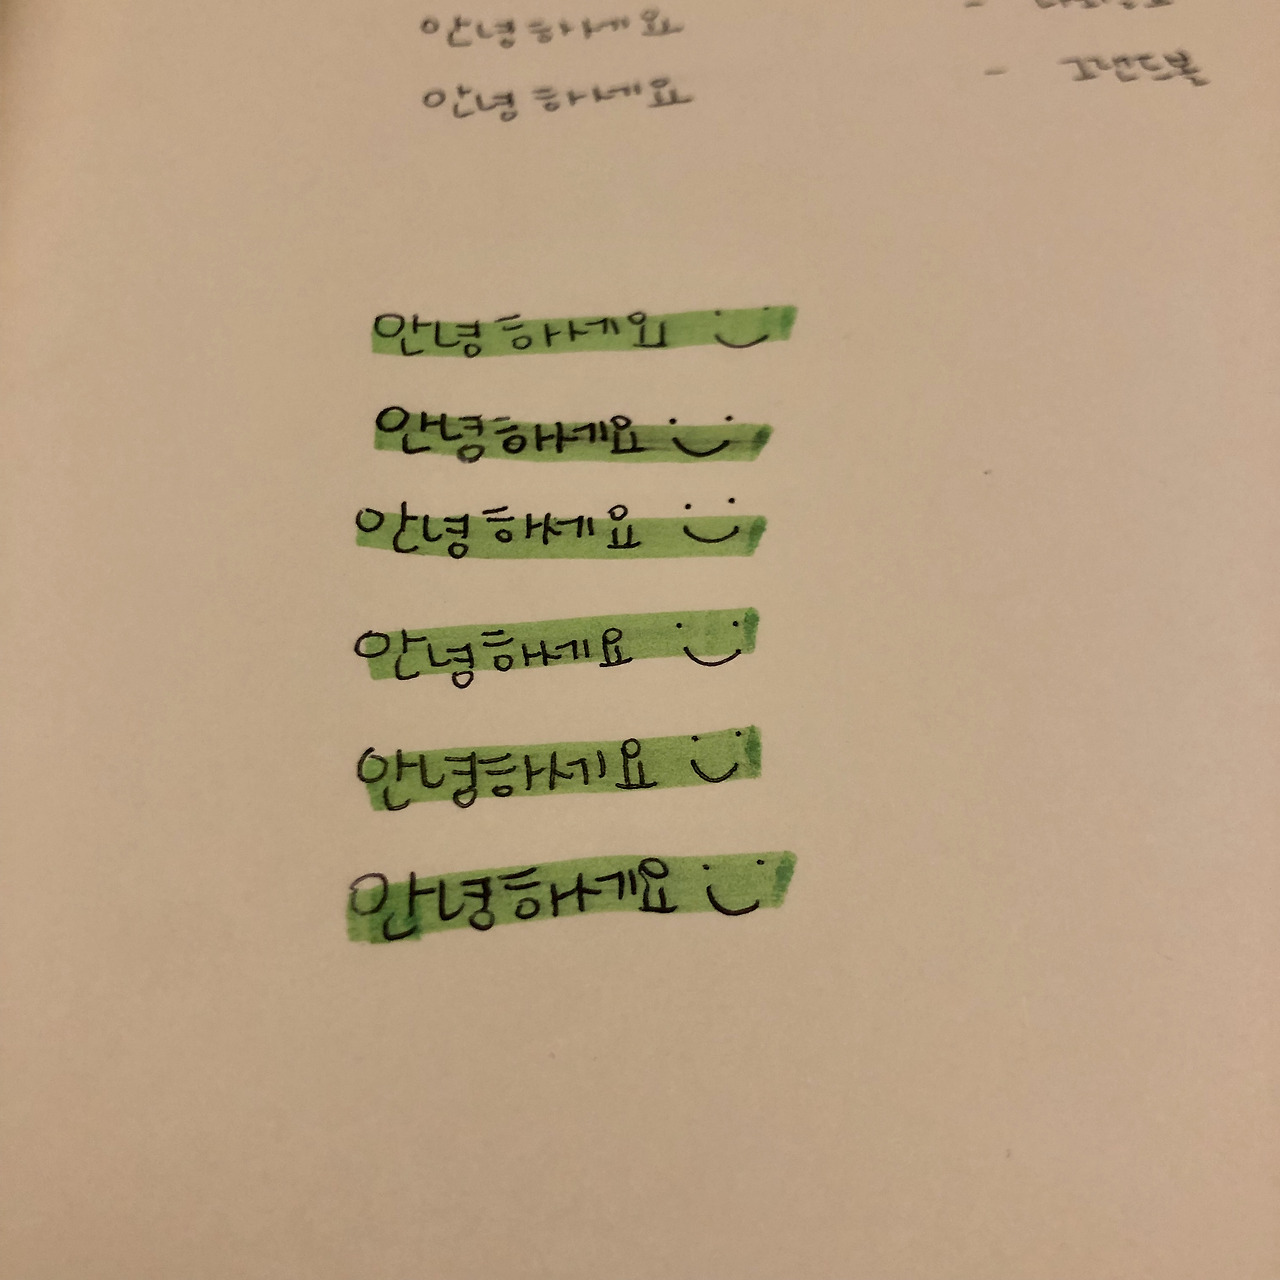 안녕하세요
안녕하세요 - 그랜드볼
안녕하세요 :)
안녕하세요 :)
안녕하세요 :)
안녕하세요 :)
안녕하세요 :)
안녕하세요 :)